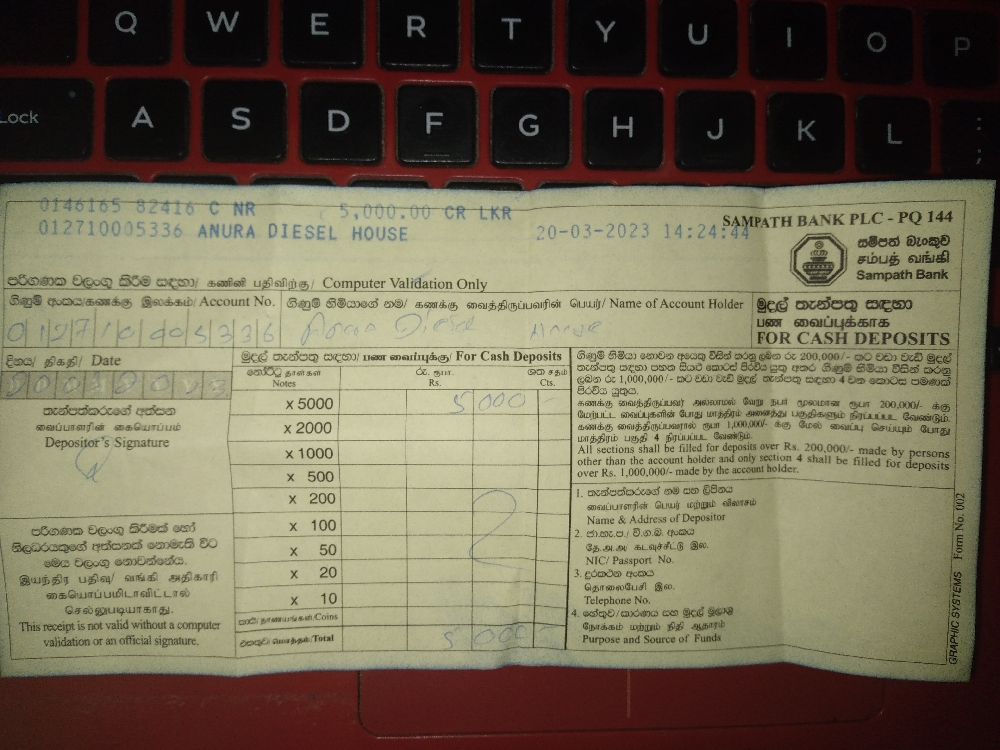 Q W E R T Y U I O P
Lock A S D F G H J K L
0146165 82416 C NR 5,000.00 CR LKR
012710005336 ANURA DIESEL HOUSE 20-03-2023 14:24:44
SAMPATH BANK PLC - PQ 144
සම්පත් බැංකුව
சம்பத் வங்கி
Sampath Bank
පරිගණක වලංගු කිරීම සඳහා/ கணினி பதிவிற்கு/ Computer Validation Only
ගිණුම් අංකය/கணக்கு இலக்கம்/ Account No.
ගිණුම් හිමියාගේ නම/ கணக்கு வைத்திருப்பவரின் பெயர்/ Name of Account Holder
012710005336
Diesel House
මුදල් තැන්පතු සඳහා
பண வைப்புக்காக
FOR CASH DEPOSITS
දිනය/ திகதி/ Date
මුදල් තැන්පතු සඳහා/ பண வைப்புக்கு/ For Cash Deposits
නෝට්ටු தாள்கள் Notes
රු. ரூபா. Rs.
ශත சதம் Cts.
x 5000 5000 -
x 2000
x 1000
x 500
x 200
x 100
x 50
x 20
x 10
කාසි நாணயங்கள்/Coins
එකතුව/ மொத்தம்/Total 5000 -
තැන්පත්කරුගේ අත්සන
வைப்பாளரின் கையொப்பம்
Depositor's Signature
පරිගණක වලංගු කිරීමක් හෝ
නිලධරයකුගේ අත්සනක් නොමැති විට
මෙය වලංගු නොවන්නේය.
இயந்திர பதிவு/ வங்கி அதிகாரி
கையொப்பமிடாவிட்டால்
செல்லுபடியாகாது.
This receipt is not valid without a computer
validation or an official signature.
ගිණුම් හිමියා නොවන අයෙකු විසින් කරනු ලබන රු 200,000/- කට වඩා වැඩි මුදල්
තැන්පතු සඳහා පහත සියළු කොටස් පිරවිය යුතු අතර ගිණුම් හිමියා විසින් කරනු
ලබන රු 1,000,000/- කට වඩා වැඩි මුදල් තැන්පතු සඳහා 4 වන කොටස පමණක්
පිරවිය යුතුය.
கணக்கு வைத்திருப்பவர் அல்லாமல் வேறு நபர் மூலமான ரூபா 200,000/- க்கு
மேற்பட்ட வைப்புகளின் போது மாத்திரம் அனைத்து பகுதிகளும் நிரப்பப்பட வேண்டும்.
கணக்கு வைத்திருப்பவரால் ரூபா 1,000,000/- க்கு மேல் வைப்பு செய்யும் போது
மாத்திரம் பகுதி 4 நிரப்பப்பட வேண்டும்.
All sections shall be filled for deposits over Rs. 200,000/- made by persons
other than the account holder and only section 4 shall be filled for deposits
over Rs. 1,000,000/- made by the account holder.
1. තැන්පත්කරුගේ නම සහ ලිපිනය
வைப்பாளரின் பெயர் மற்றும் விலாசம்
Name & Address of Depositor
2. ජා.හැ.ප./ වි.ග.බ. අංකය
தே.அ.அ/ கடவுச்சீட்டு இல.
NIC/ Passport No.
3. දුරකථන අංකය
தொலைபேசி இல.
Telephone No.
4. හේතුව/කාරණය සහ මුදල් මූලාශ්‍ර
நோக்கம் மற்றும் நிதி ஆதாரம்
Purpose and Source of Funds
GRAPHIC SYSTEMS Form No. 002